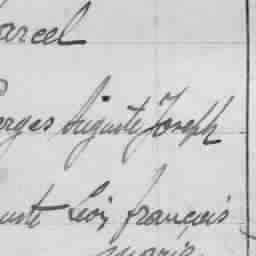 arcel
orges Auguste Joseph
uste Léon françois
marie